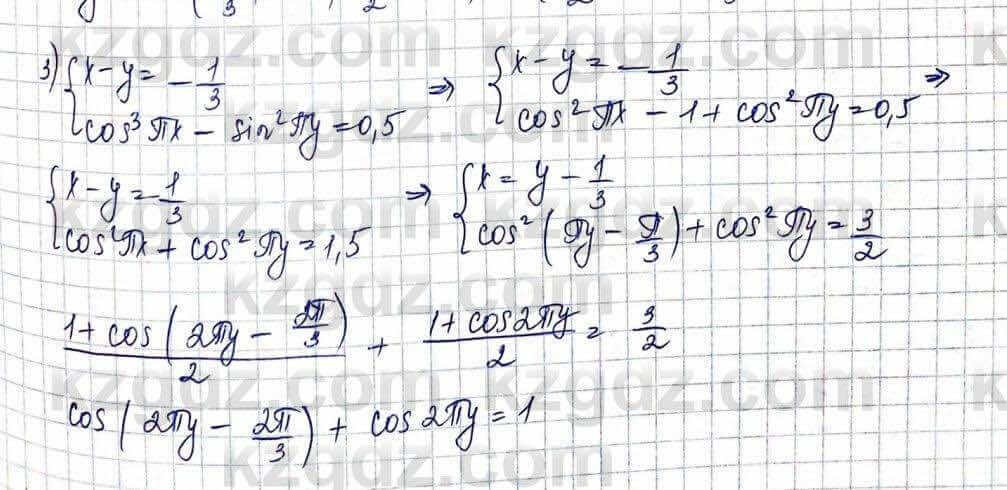 3) { x - y = - 1/3 ⇒ { x - y = - 1/3 ⇒
cos³ πx - sin² πy = 0,5 cos² πx - 1 + cos² πy = 0,5
{ x - y = - 1/3 ⇒ { x = y - 1/3
cos² πx + cos² πy = 1,5 cos² ( πy - π/3 ) + cos² πy = 3/2
(1 + cos ( 2πy - 2π/3 ))/2 + (1 + cos 2πy)/2 = 3/2
cos ( 2πy - 2π/3 ) + cos 2πy = 1
kzgdz.com